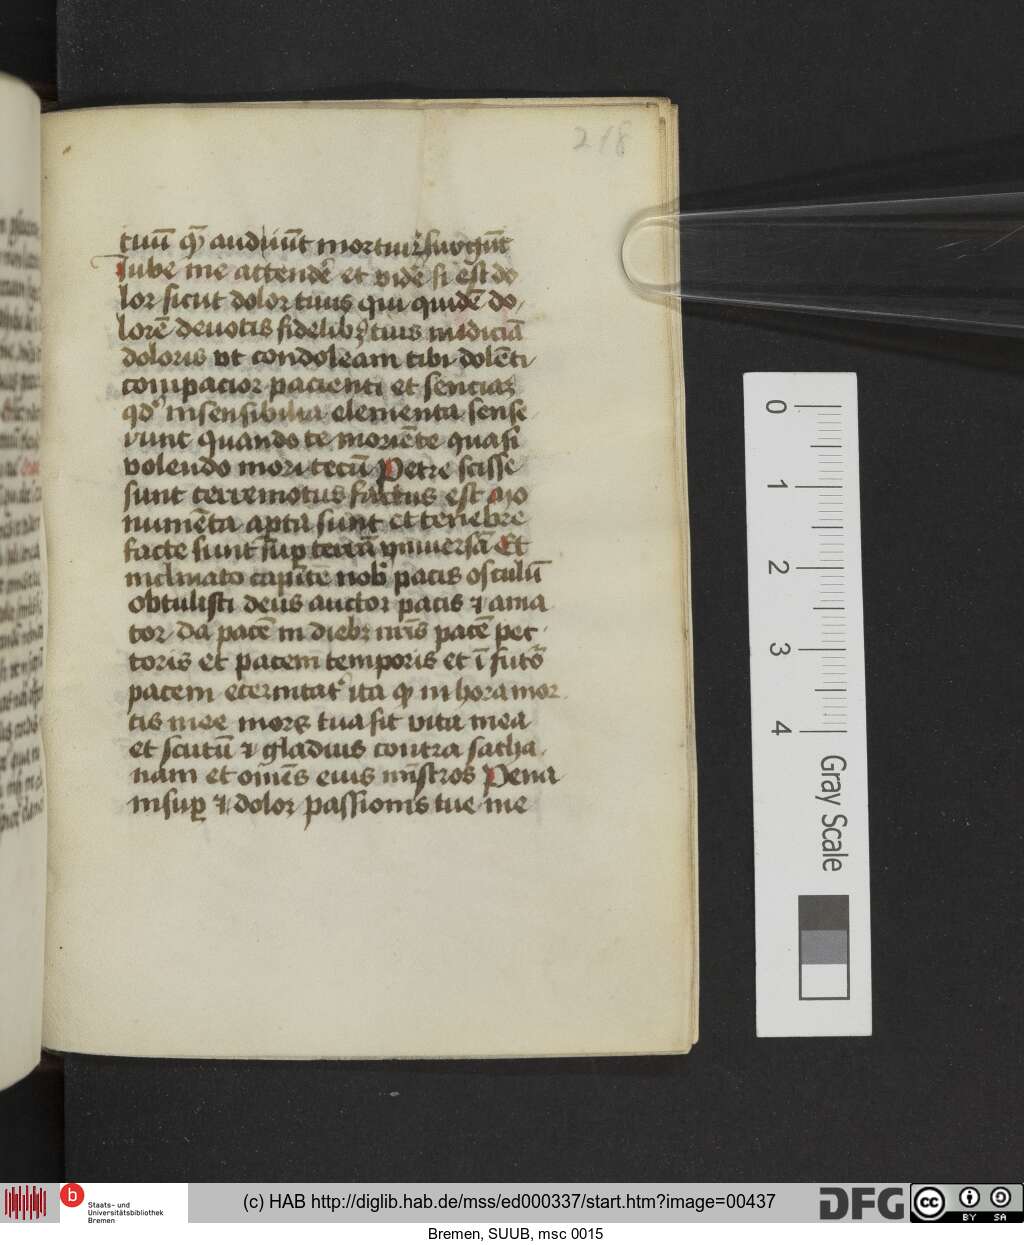 218
tuū qm̄ audiūt mortui ⁊ surgūt
Iube me attendē et vidē si est do
lor sicut dolor tuus qui quidē do
lorē deuotis fidelibꝫ tuis
doloris vt condoleam tibi dolēti
compacior pacienti et senciaꝫ
qd' insensibilia elementa sense
runt quando te moriēte quasi
volendo mori tecū Petre scisse
sunt terremotus factus est Mo
numēta apta sunt et tenebre
facte sunt sup terrā vniuersā Et
inclinato capite nobꝭ pacis osculū
obtulisti deus auctor pacis ⁊ ama
tor da pacē in diebꝫ nr̄is pacē pec
toris et pacem temporis et ī futō
pacem eternitatꝭ ita ꝙ in hora mor
tis mee mors tua sit vita mea
et scutū ⁊ gladius contra satha
nam et omēs eius mīstros Pena
insuꝑ ⁊ dolor passionis tue me
0
1
2
3
4
Gray Scale
b Staats- und
Universitätsbibliothek
Bremen
(c) HAB http://diglib.hab.de/mss/ed000337/start.htm?image=00437
DFG
cc
BY SA
Bremen, SUUB, msc 0015